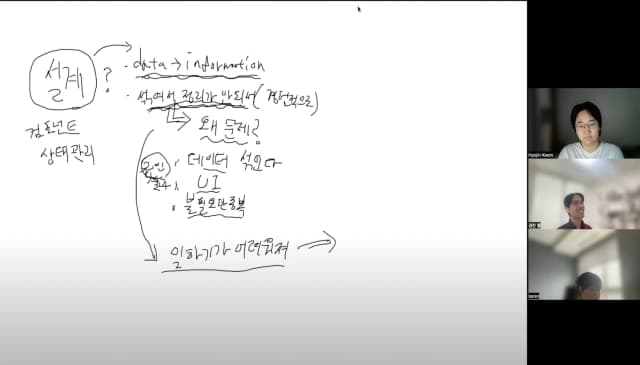 설계 ?
컴포넌트
상태관리
· data → information
· 섞여서 정리가 안되서 (경험적으로)
왜 문제?
원인
데이터 섞인다
UI
불필요한 중복
일하기가 어려워져
Hyojin Kwon